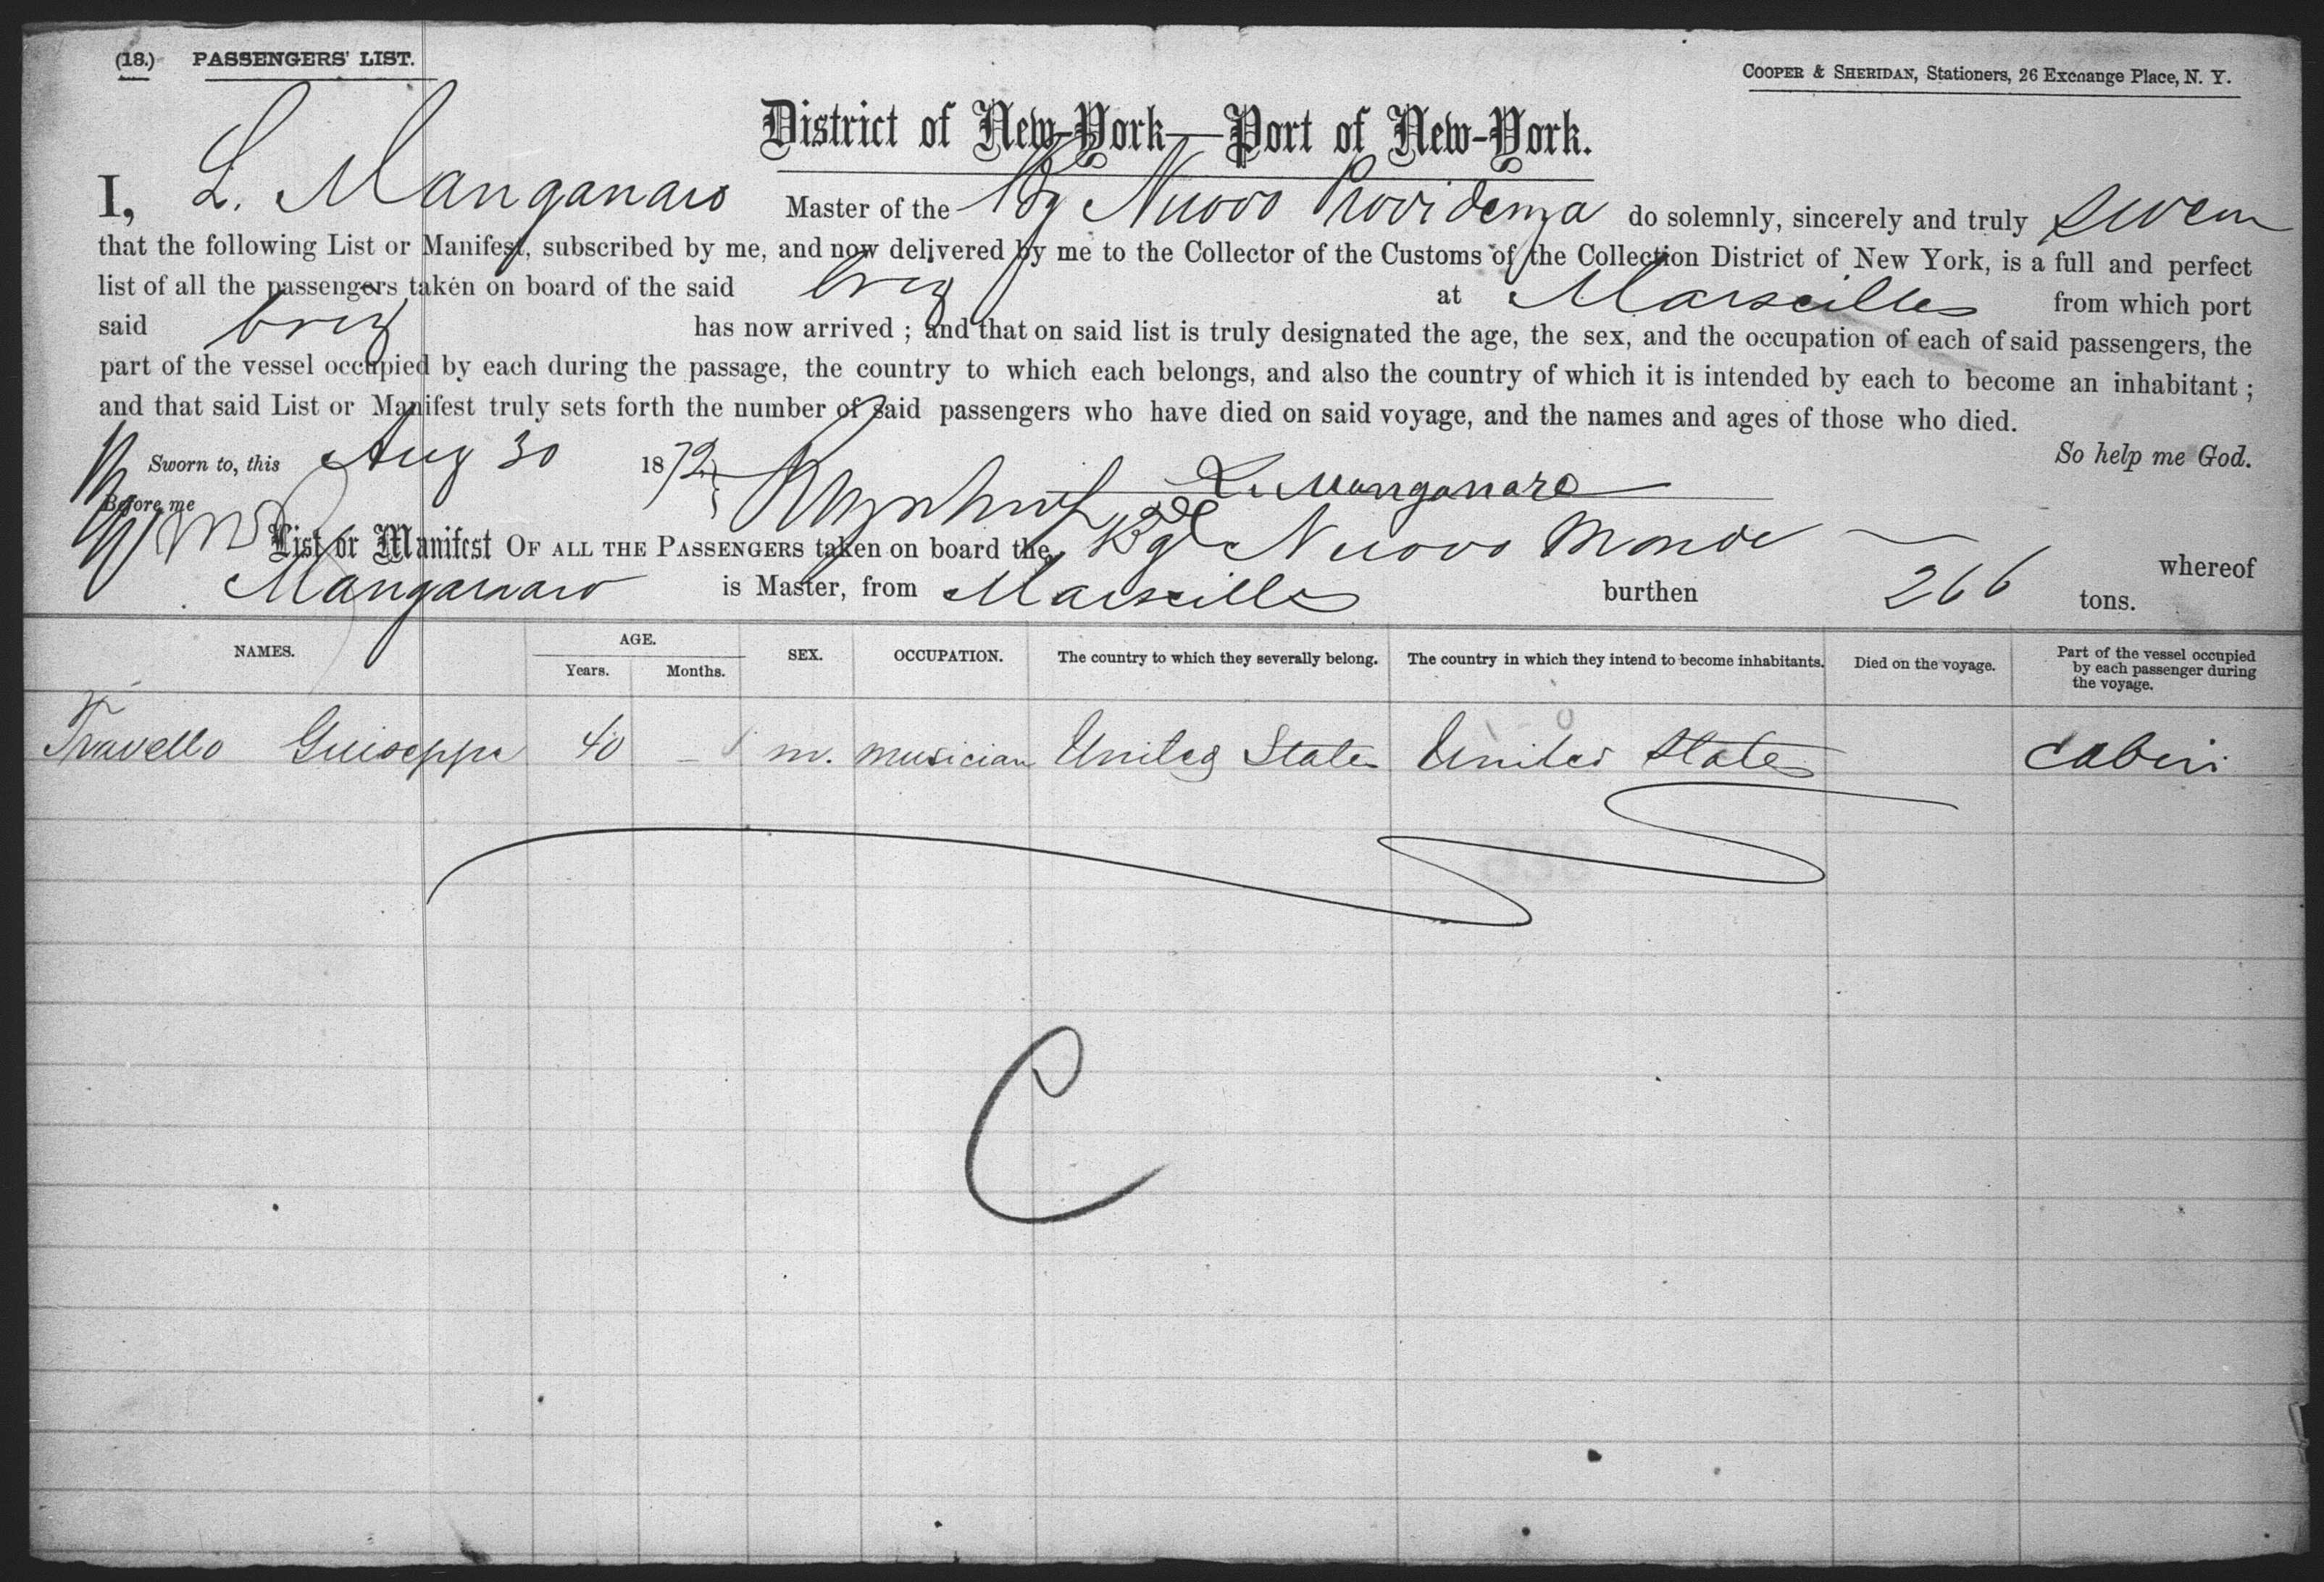 (18.) PASSENGERS' LIST.
COOPER & SHERIDAN, Stationers, 26 Exchange Place, N. Y.
District of New-York—Port of New-York.
I, L. Manganaro Master of the Bg Nuovo Providenza do solemnly, sincerely and truly swear
that the following List or Manifest, subscribed by me, and now delivered by me to the Collector of the Customs of the Collection District of New York, is a full and perfect
list of all the passengers taken on board of the said brig at Marseilles from which port
said brig has now arrived ; and that on said list is truly designated the age, the sex, and the occupation of each of said passengers, the
part of the vessel occupied by each during the passage, the country to which each belongs, and also the country of which it is intended by each to become an inhabitant ;
and that said List or Manifest truly sets forth the number of said passengers who have died on said voyage, and the names and ages of those who died.
So help me God.
Sworn to, this Aug 30 1872
L. Manganaro
Before me
List or Manifest OF ALL THE PASSENGERS taken on board the Bg Nuovo Monde whereof
Manganaro is Master, from Marseilles burthen 266 tons.
NAMES. AGE. SEX. OCCUPATION. The country to which they severally belong. The country in which they intend to become inhabitants. Died on the voyage. Part of the vessel occupied by each passenger during the voyage.
Years. Months.
Travello Guiseppe 40 – m. musician United States United States cabin
C